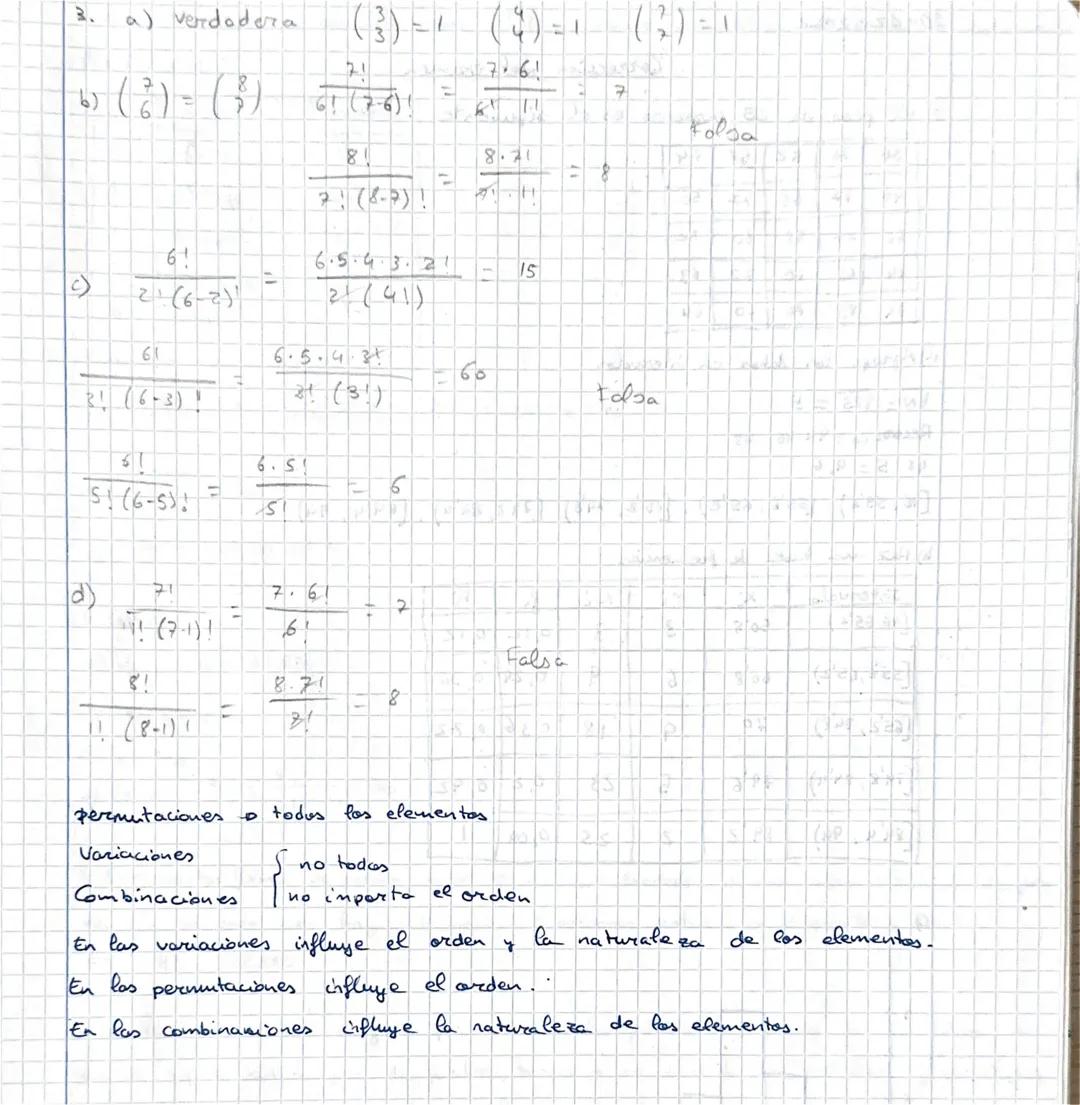 3. a) verdadera (3 3) = 1 (4 4) = 1 (7 7) = 1
b) (7 6) = (8 7) 7! / 6! (7-6)! = 7·6! / 6! 1! = 7
Falsa
8! / 7! (8-7)! = 8·7! / 7!·1! = 8
c) 6! / 2! (6-2)! = 6·5·4·3·2! / 2! (4!) = 15
6! / 3! (6-3)! = 6·5·4·3! / 3! (3!) = 60
Falsa
6! / 5! (6-5)! = 6·5! / 5! = 6
d) 7! / 1! (7-1)! = 7·6! / 6! = 7
Falsa
8! / 1! (8-1)! = 8·7! / 7! = 8
permutaciones → todos los elementos
Variaciones { no todos
Combinaciones no importa el orden
En las variaciones influye el orden y la naturaleza de los elementos.
En las permutaciones influye el orden.
En las combinaciones influye la naturaleza de los elementos.